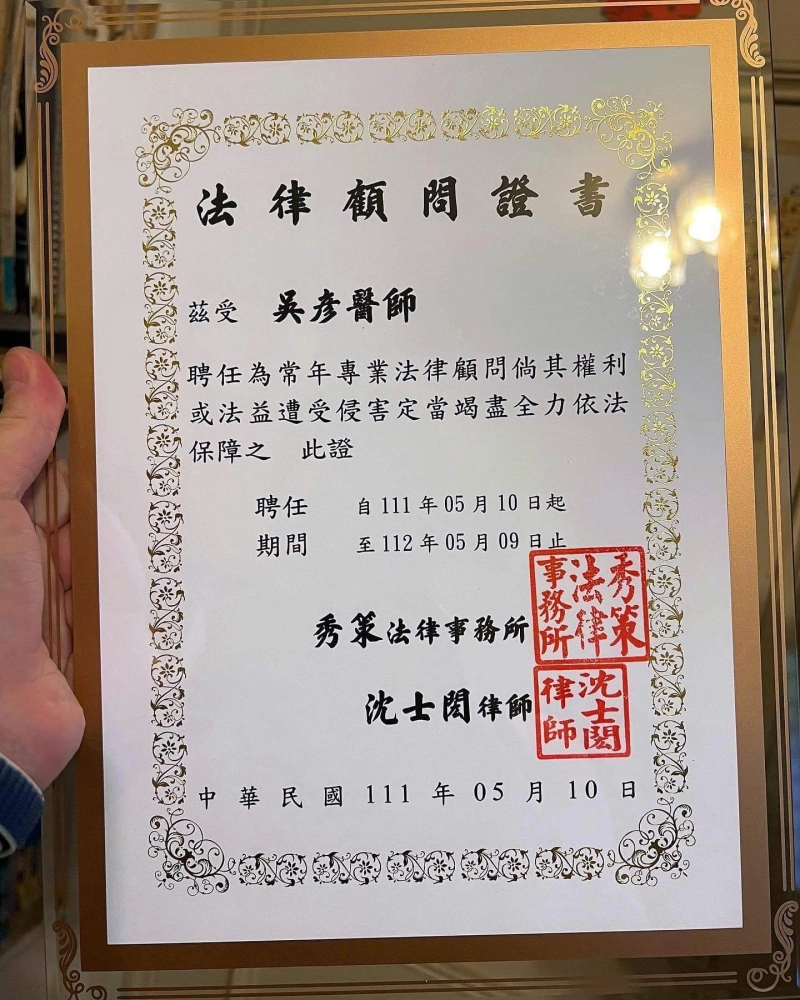 法律顧問證書
茲受 吳彥醫師
聘任為常年專業法律顧問倘其權利
或法益遭受侵害定當竭盡全力依法
保障之 此證
聘任 自111年05月10日起
期間 至112年05月09日止
秀策法律事務所
秀策法律事務所
沈士閎律師
沈士閎律師
中華民國111年05月10日